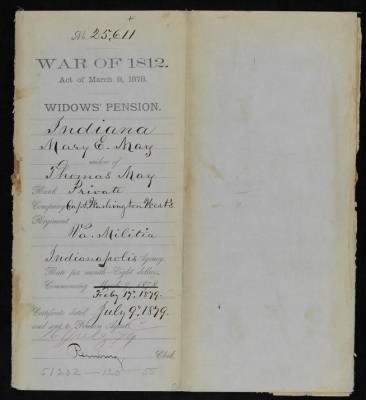 No. 25,611
WAR OF 1812.
Act of March 9, 1878.
WIDOWS' PENSION.
Indiana
Mary E. May
widow of
Thomas May
Rank Private
Company Capt. Washington West's
Regiment
Va. Militia
Indianapolis Agency.
Rate per month—Eight dollars,
Commencing March 9, 1878
Feby 17, 1879.
Certificate dated July 9, 1879.
and sent to Pension Agent
Clerk.
51202-120-55